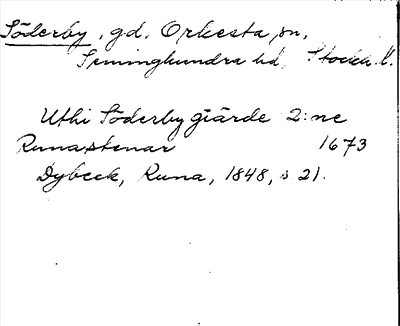 Söderby, gd, Orkesta sn,
Seminghundra hd, Stockh. l.
Uthi Söderby giärde 2:ne
Runastenar 1673
Dybeck, Runa, 1848, s 21.